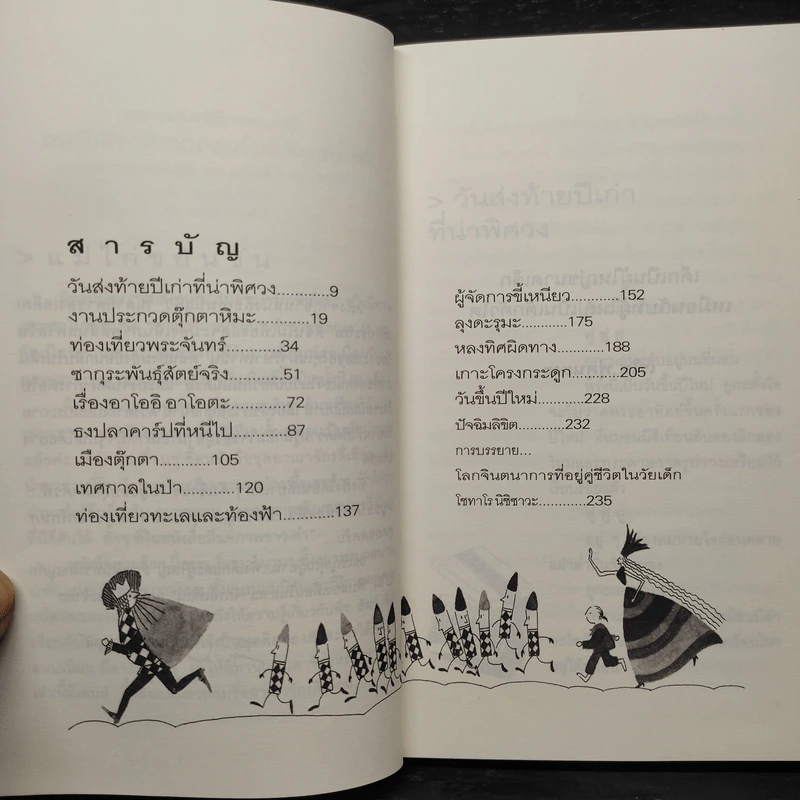 สารบัญ
วันส่งท้ายปีเก่าที่น่าพิศวง............9
งานประกวดตุ๊กตาหิมะ............19
ท่องเที่ยวพระจันทร์............34
ซากุระพันธุ์สัตย์จริง............51
เรื่องอาโออิ อาโอตะ............72
ธงปลาคาร์ปที่หนีไป............87
เมืองตุ๊กตา............105
เทศกาลในป่า............120
ท่องเที่ยวทะเลและท้องฟ้า............137
ผู้จัดการขี้เหนียว............152
ลุงดะรุมะ............175
หลงทิศผิดทาง............188
เกาะโครงกระดูก............205
วันขึ้นปีใหม่............228
ปัจฉิมลิขิต............232
การบรรยาย...
โลกจินตนาการที่อยู่คู่ชีวิตในวัยเด็ก
โซทาโร นิชิซาวะ............235
< วันส่งท้ายปีเก่า
ที่น่าพิศวง